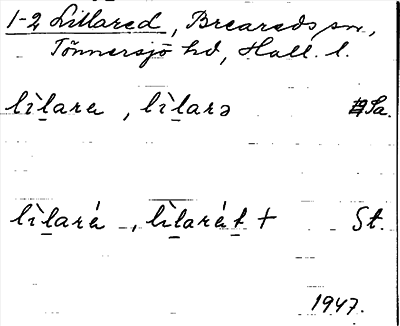 1-2 Lillared, Breareds sn,
Tönnersjö hd, Hall. l.
lìlarɐ, lìlarə Sa.
lìlaré, lìlarét + St.
1947.